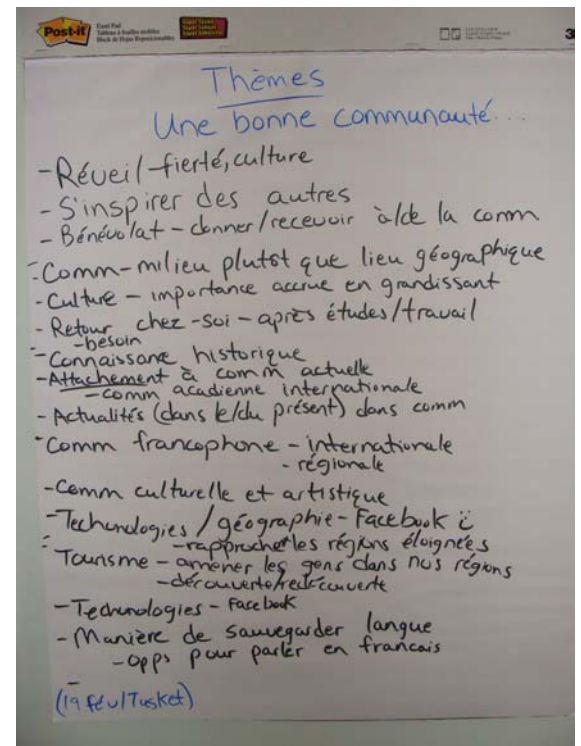 Post-it
Easel Pad
Tableau à feuilles mobiles
Block de Hojas Reposicionables
3
Thèmes
Une bonne communauté...
- Réveil - fierté, culture
- S'inspirer des autres
- Bénévolat - donner/recevoir à/de la comm
- Comm - milieu plutôt que lieu géographique
- Culture - importance accrue en grandissant
- Retour chez-soi - après études/travail
- besoin
- Connaissance historique
- Attachement à comm actuelle
- comm acadienne internationale
- Actualités (dans le/du présent) dans comm
- Comm francophone - internationale
- régionale
- Comm culturelle et artistique
- Technologies / géographie - Facebook
- rapprocher les régions éloignées
- Tourisme - amener les gens dans nos régions
- découverte/redécouverte
- Technologies - Facebook
- Manière de sauvegarder langue
- opps pour parler en francais
(19 fév/Tusket)